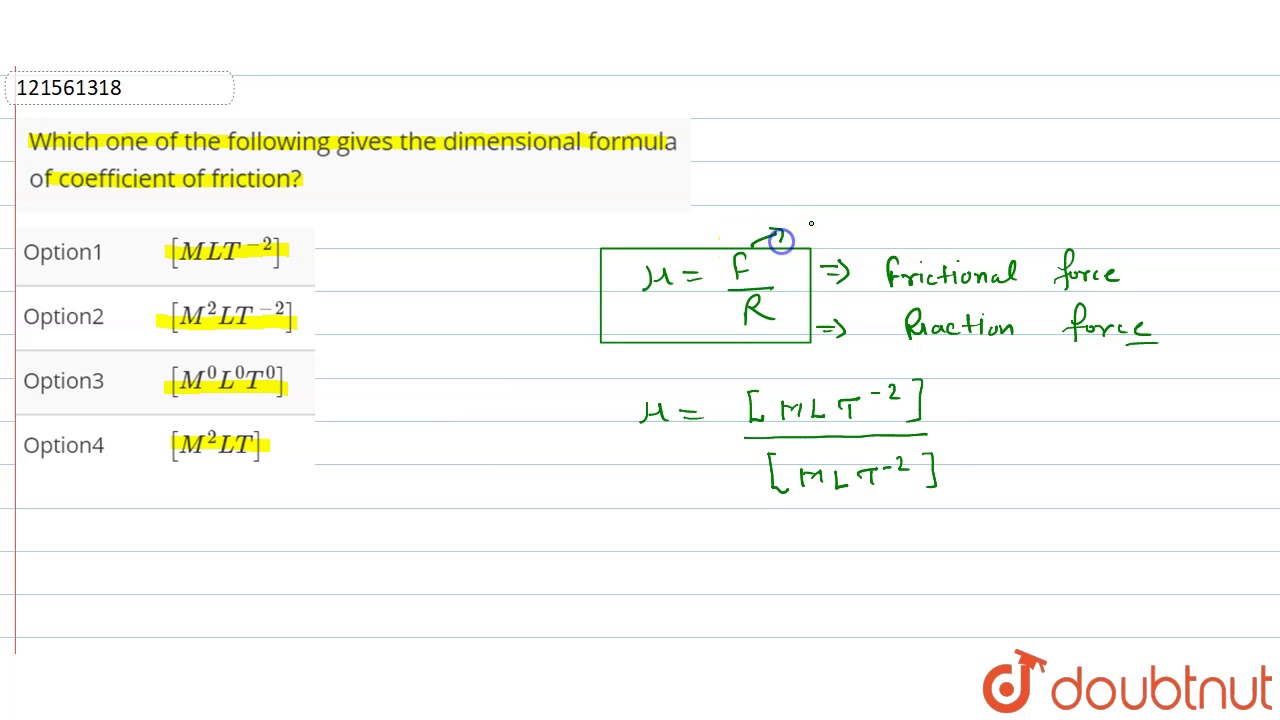 121561318
Which one of the following gives the dimensional formula
of coefficient of friction?
Option1 [MLT⁻²]
Option2 [M²LT⁻²]
Option3 [M⁰L⁰T⁰]
Option4 [M²LT]
μ = F/R
⇒ Frictional force
⇒ Reaction force
μ = [MLT⁻²]/[MLT⁻²]
doubtnut